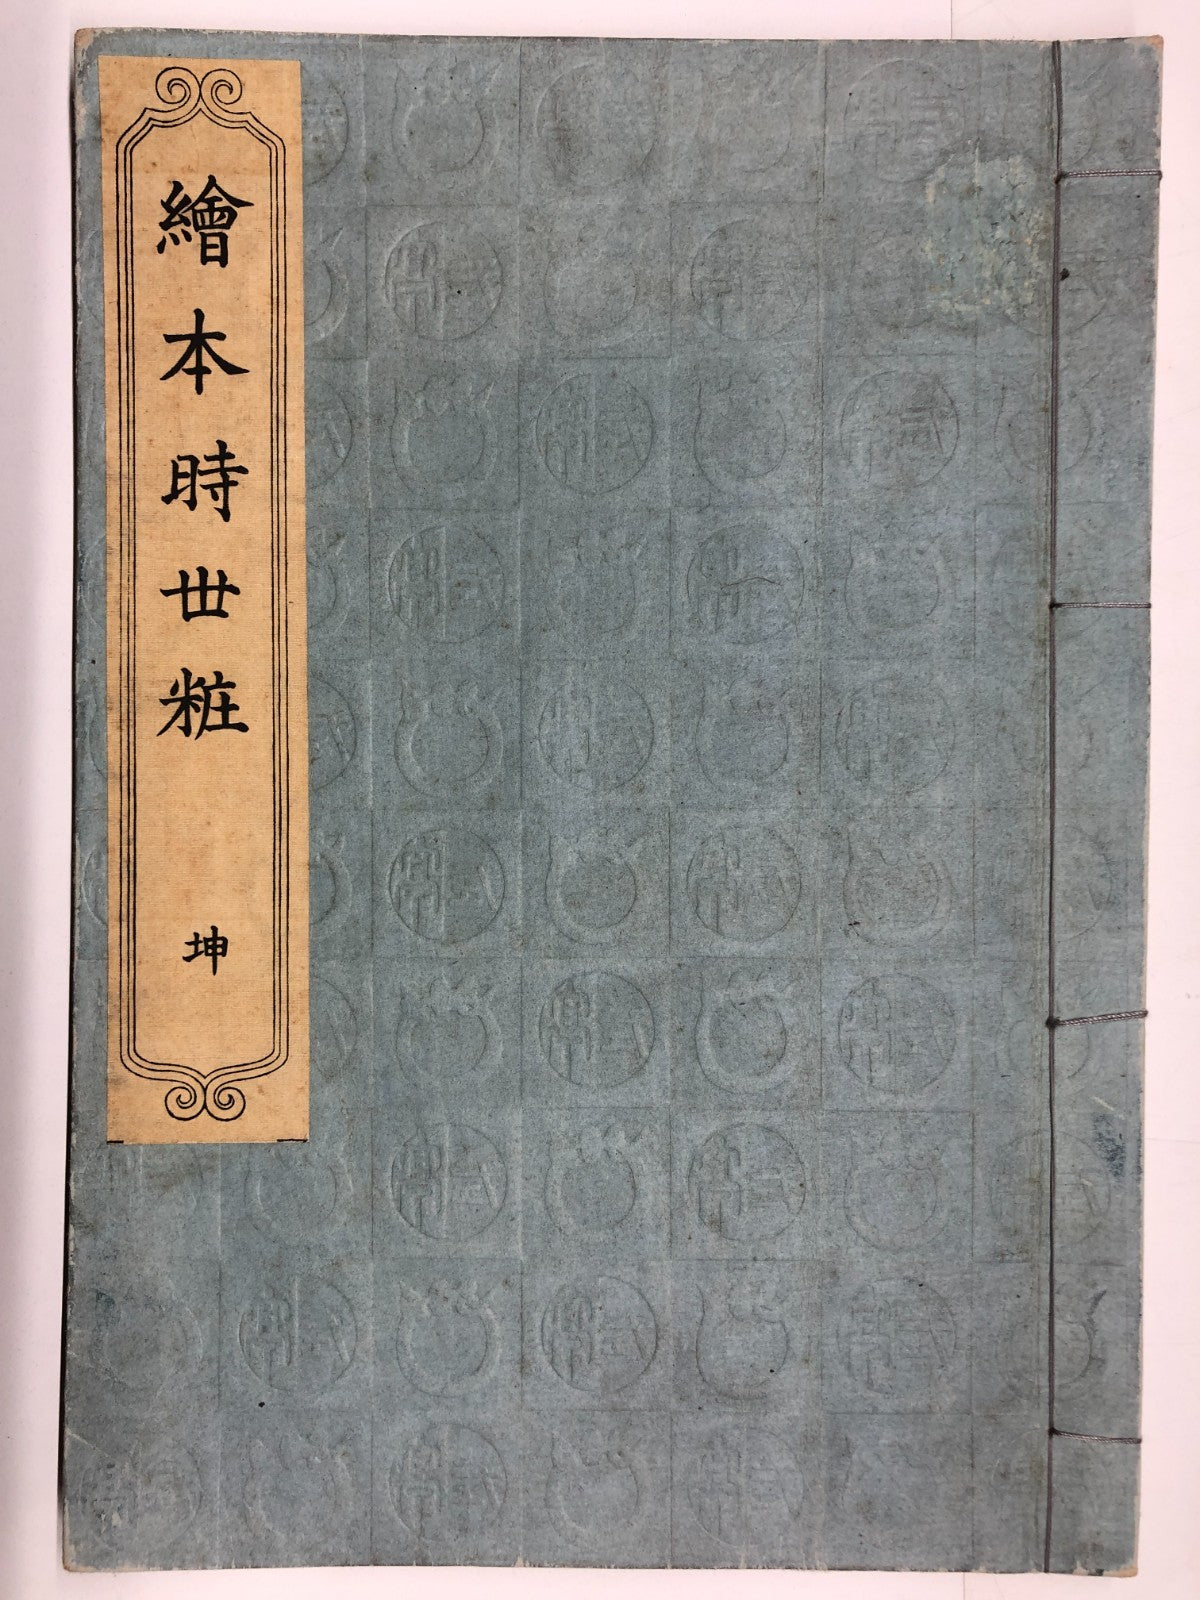 繪本時丗粧 坤